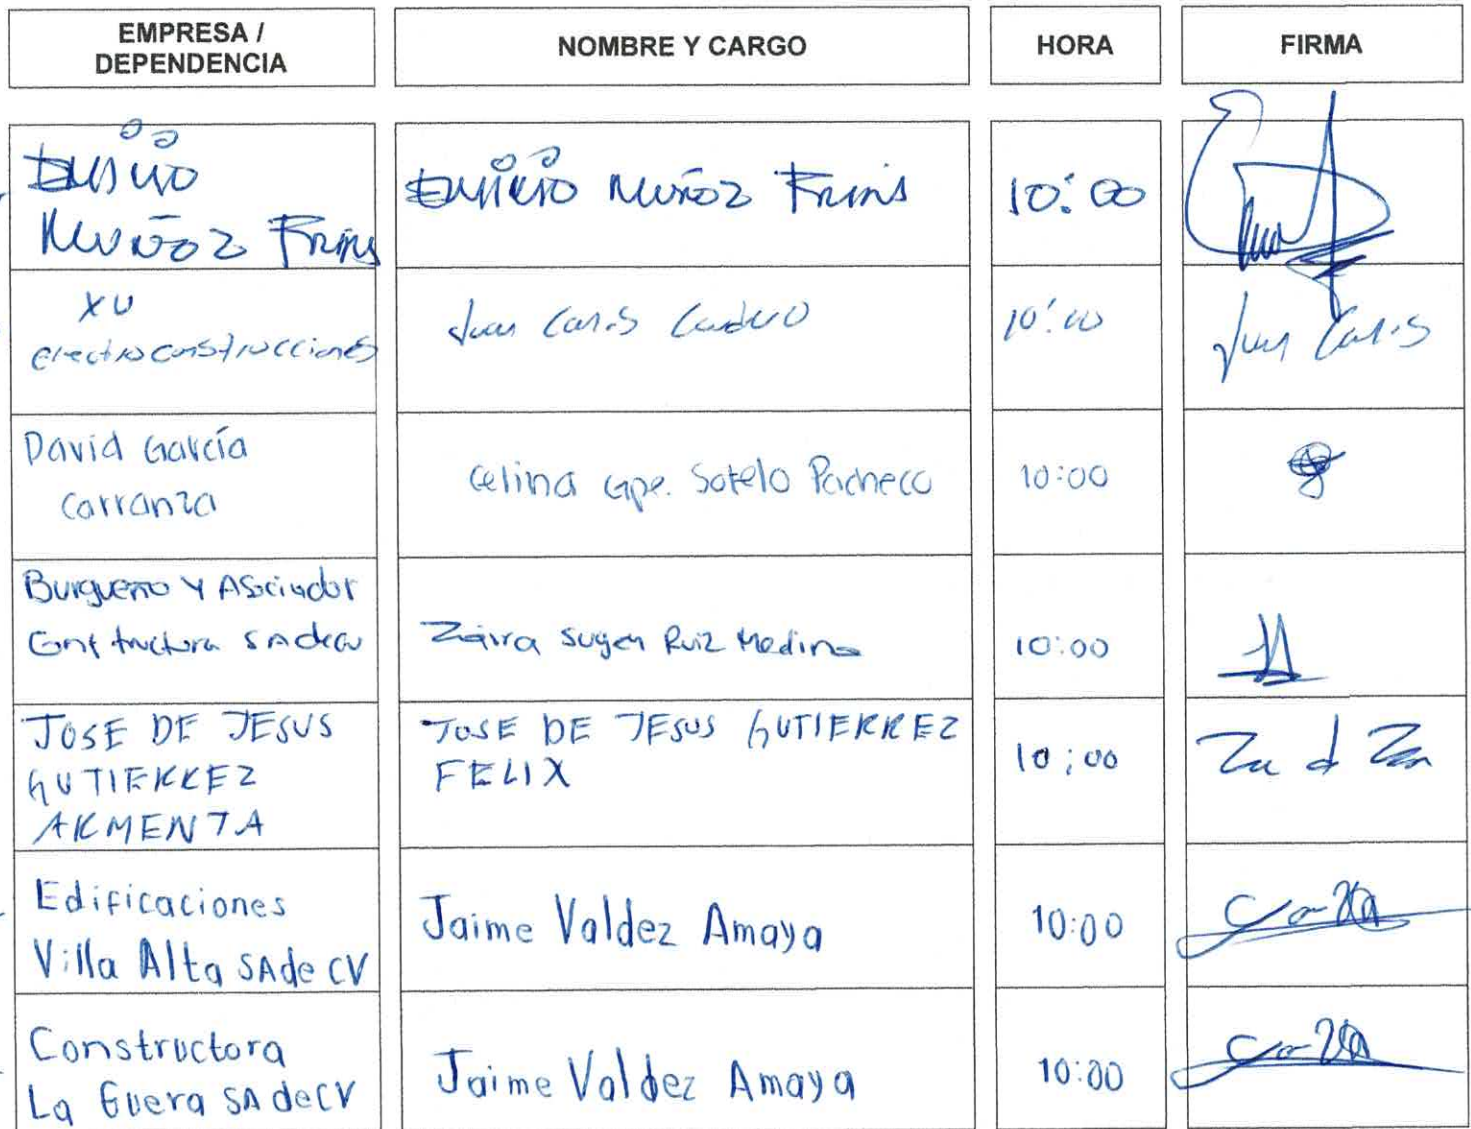 EMPRESA /
DEPENDENCIA
NOMBRE Y CARGO
HORA
FIRMA
MUÑOZ Frins
Emilio MUÑOZ Frins
10:00
XU
electroconstrucciones
Juan Carlos Cordero
10:00
Juan Carlos
David García
Carranza
Celina Gpe. Sotelo Pacheco
10:00
Burgueño Y Asociados
Constructora SAdeCV
Zaira Sugey Ruiz Medina
10:00
JOSE DE JESUS
GUTIERREZ
ARMENTA
JOSE DE JESUS GUTIERREZ
FELIX
10:00
Edificaciones
Villa Alta SAde CV
Jaime Valdez Amaya
10:00
Constructora
La Guera SA deCV
Jaime Valdez Amaya
10:00